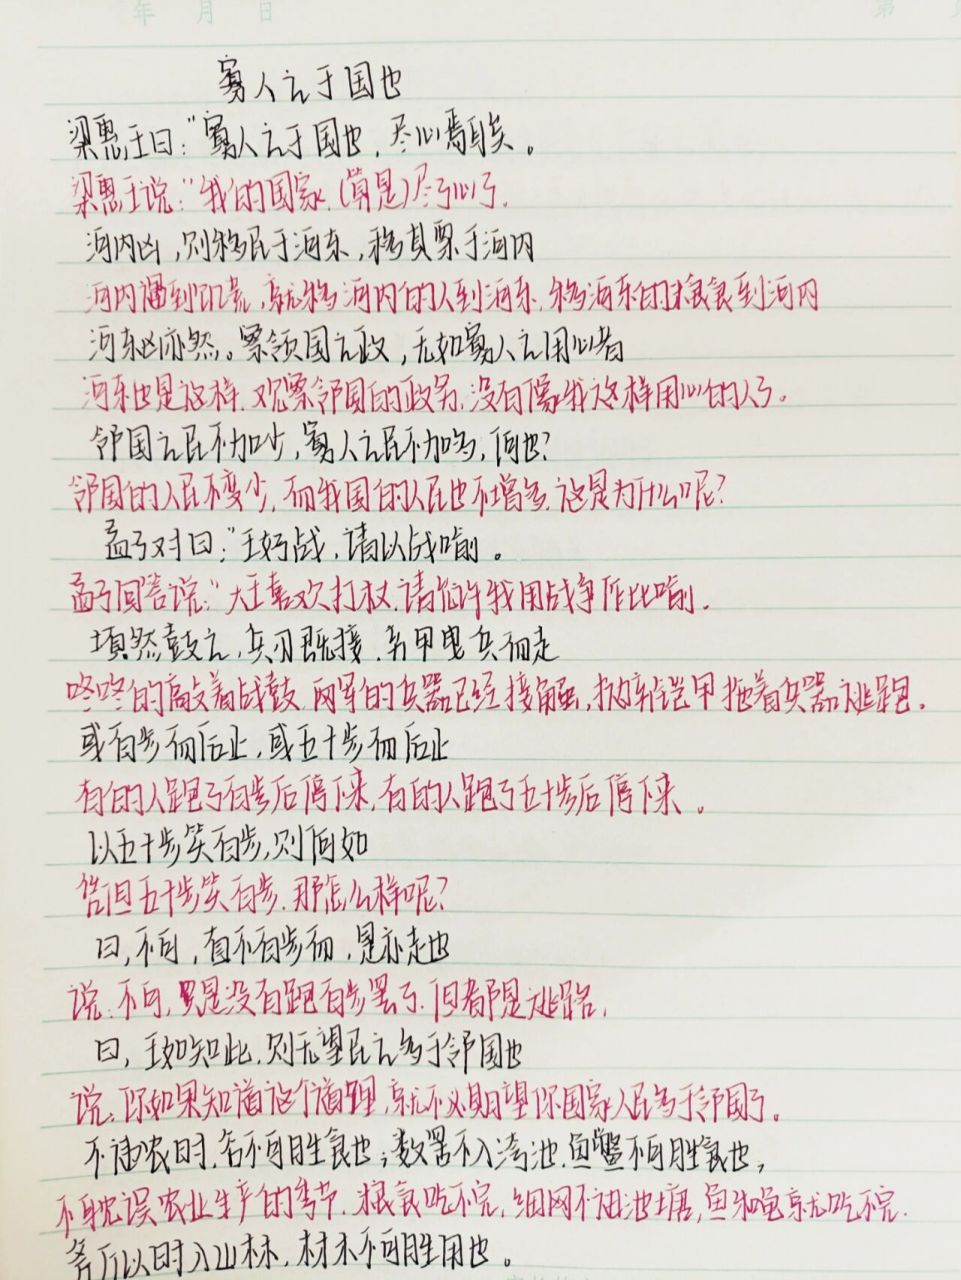 年 月 日
第
寡人之于国也
梁惠王曰："寡人之于国也，尽心焉耳矣。
梁惠王说："我的国家，(算是)尽了心了。
河内凶，则移民于河东，移其粟于河内
河内遇到饥荒，就移河内的人到河东，移河东的粮食到河内
河东凶亦然。察领国之政，无如寡人之用心者
河东也是这样，观察邻国的政务，没有像我这样用心的人了。
邻国之民不加少，寡人之民不加多，何也？
邻国的人民不变少，而我国的人民也不增多，这是为什么呢？
孟子对曰："王好战，请以战喻。
孟子回答说："大王喜欢打杖，请允许我用战争作比喻。
填然鼓之，兵刃既接，弃甲曳兵而走
咚咚的敲着战鼓，两军的兵器已经接触，抛弃铠甲拖着兵器逃跑。
或百步而后止，或五十步而后止
有的人跑了百步后停下来，有的人跑了五十步后停下来。
以五十步笑百步，则何如
凭但五十步笑百步，那怎么样呢？
曰，不可，直不百步而，是亦走也
说，不可，只是没有跑百步罢了，但都是逃路，
曰，王如知此，则无望民之多于邻国也
说，你如果知道这个道理，就不必期望你国家人民多于邻国了。
不违农时，谷不可胜食也；数罟不入洿池，鱼鳖不可胜食也，
不耽误农业生产的季节，粮食吃不完，细网不进池塘，鱼和龟就吃不完.
斧斤以时入山林，材木不可胜用也。